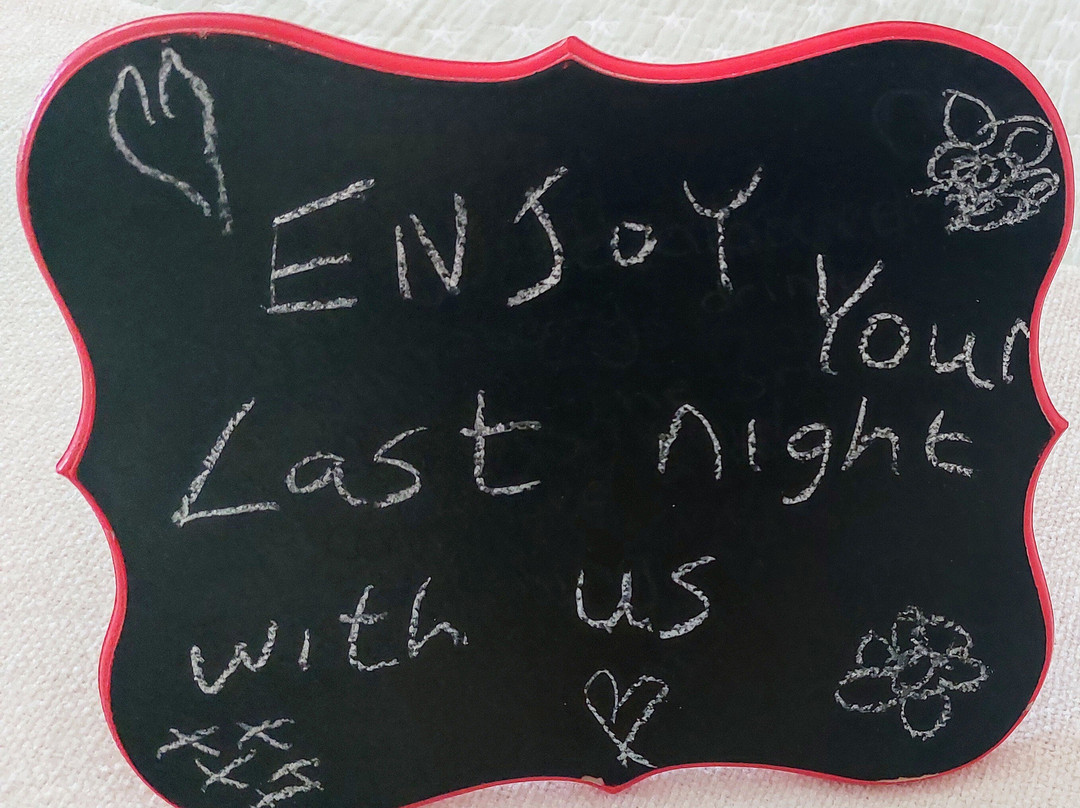 ENJOY
Your
Last night
with us
xx
xx